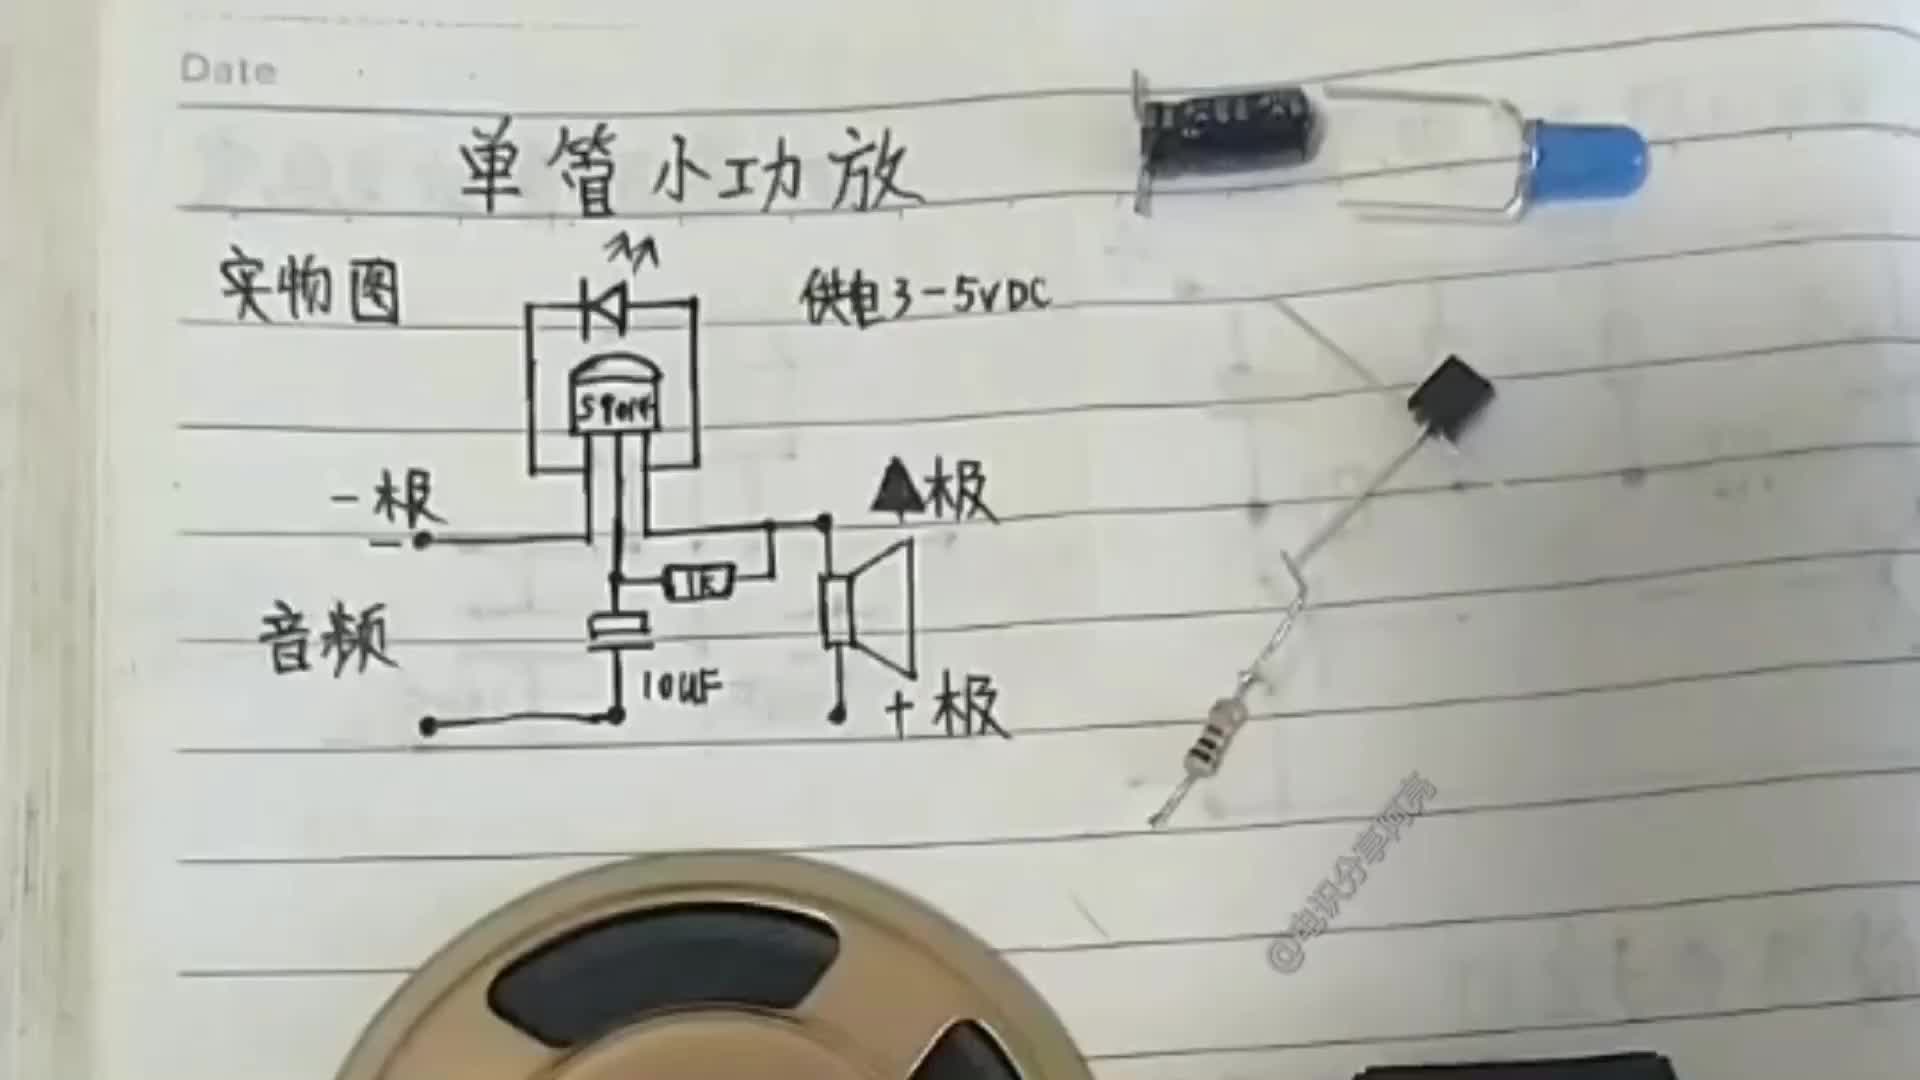 Date
单管小功放
实物图
供电3-5VDC
-极
极
-
1K
音频
10UF
+极
@电识分享阿亮